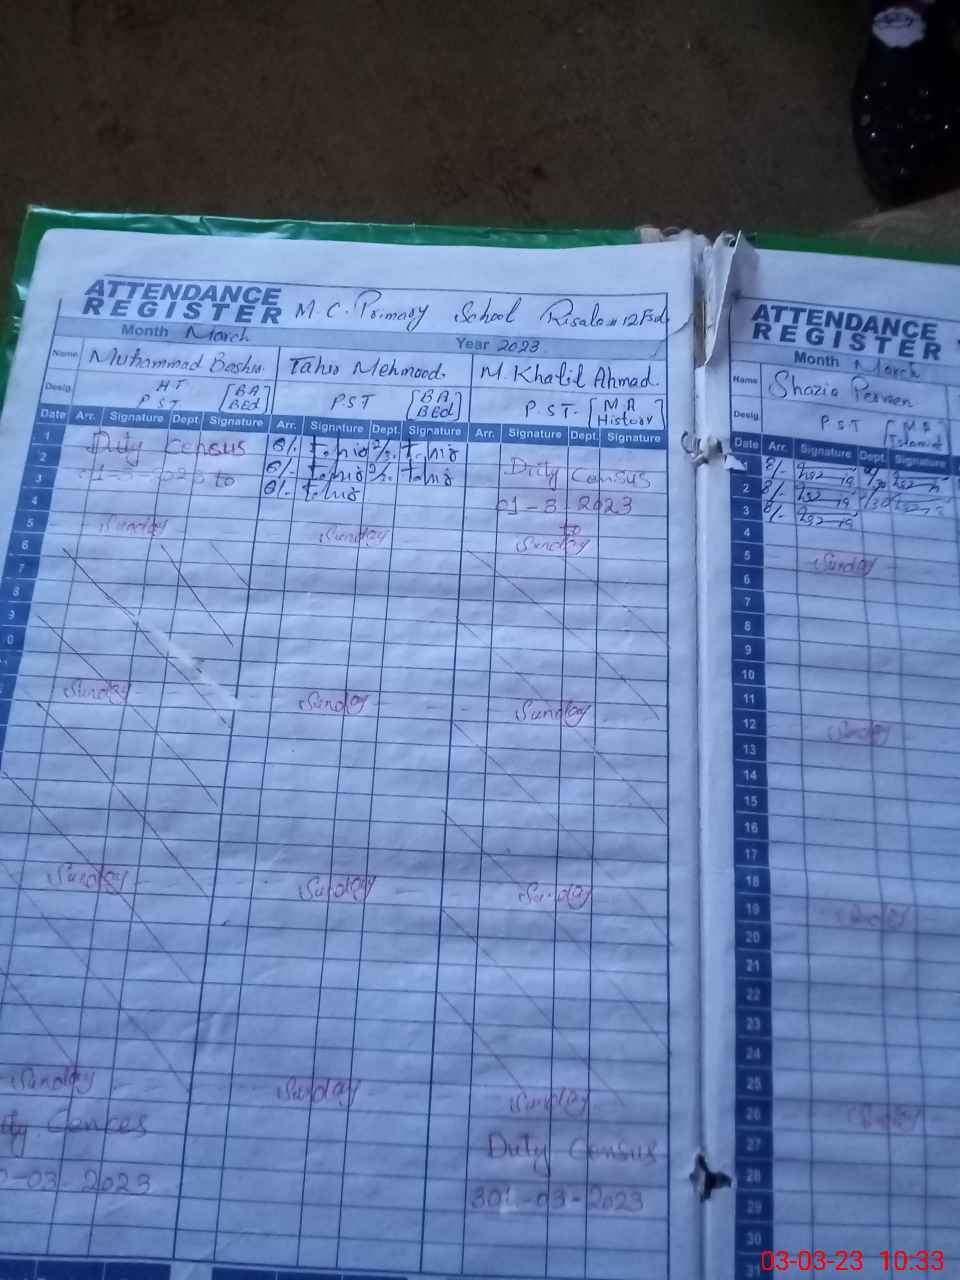 ATTENDANCE REGISTER M.C. Primary School Risala # 12 Fsd
Month March Year 2023
Name Muhammad Bashir Tahir Mehmood. M. Khalil Ahmad.
Desig. H.T P.S.T [BA, BEd] P.S.T [BA, BEd] P.S.T. [MA History]
Date Arr. Signature Dept Signature Arr. Signature Dept. Signature Arr. Signature Dept. Signature
1 Duty Census 8/. Tahir Tahir
2 8/. Tahir Tahir Duty Census
3 to 8/. Tahir
4 01-3-2023
5 Sunday Sunday to
6 Sunday
7
8
9
0
Sunday Sunday Sunday
Sunday Sunday Sunday
Sunday Sunday Sunday
Cences Duty Census
-03-2023 -03-2023
ATTENDANCE REGISTER
Month March
Name Shazia Perveen
Desig. P.S.T
Date Arr. Signature Dept. Signature
1 8/.
2 8/.
3 8/.
4
5 Sunday
6
7
8
9
10
11
12 Sunday
13
14
15
16
17
18
19 Sunday
20
21
22
23
24
25
26 Sunday
27
28
29
30
31
03-03-23 10:33